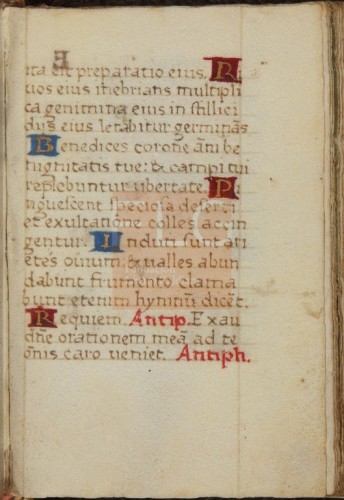 ita est preparatio eius. Ri
uos eius inebrians multipli
ca genimina eius in stillici
dijs eius letabitur germinãs
Benedices corone ãni be
nignitatis tue: & campi tui
replebuntur ubertate. Pi
nguescent speciosa deserti
et exultatione colles accin
gentur. Induti sunt ari
etes ouium & ualles abun
dabunt frumento clama
bunt etenim hymnũ dicẽt.
Requiem. Antip. Exau
dñe orationem meã ad te
õnis caro veniet. Antiph.